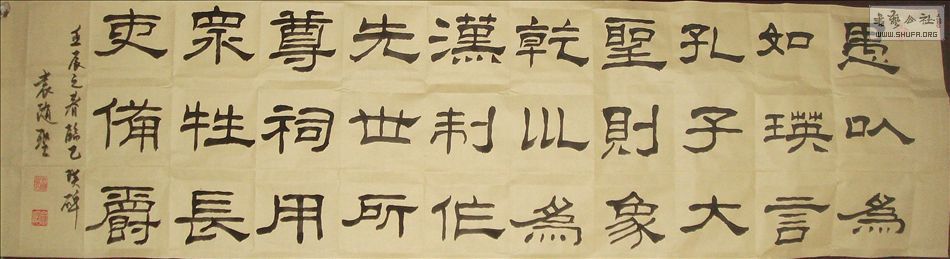 愚以為
如瑛言
孔子大
聖則象
乾巛為
漢制作
先世所
尊祠用
眾牲長
吏備爵
壬辰之春臨乙瑛碑
袁随聖
書藝公社
WWW.SHUFA.ORG